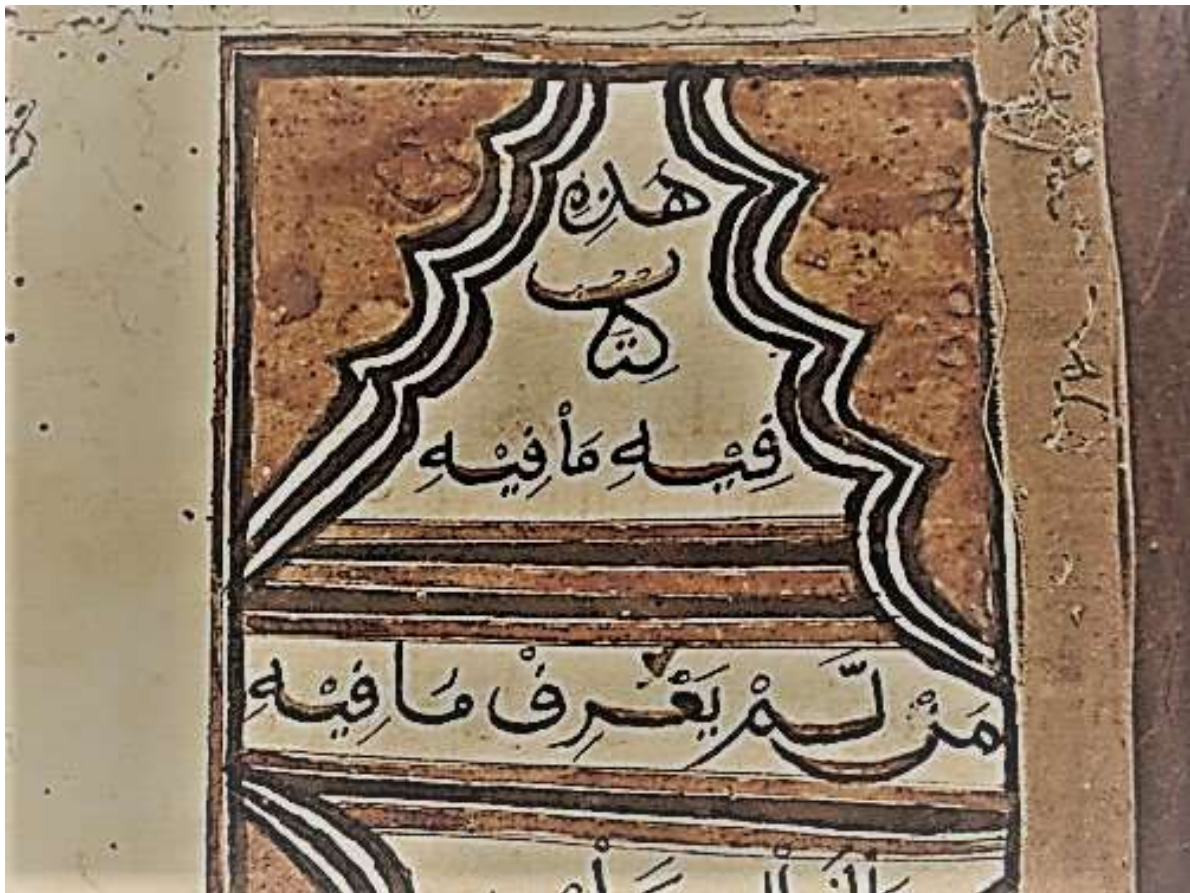 هَذِهِ
كِتَب
فِيْهِ مَاْ فِيْهِ
مَنْ لَّمْ يَعْرِفْ مَا فِيْهِ